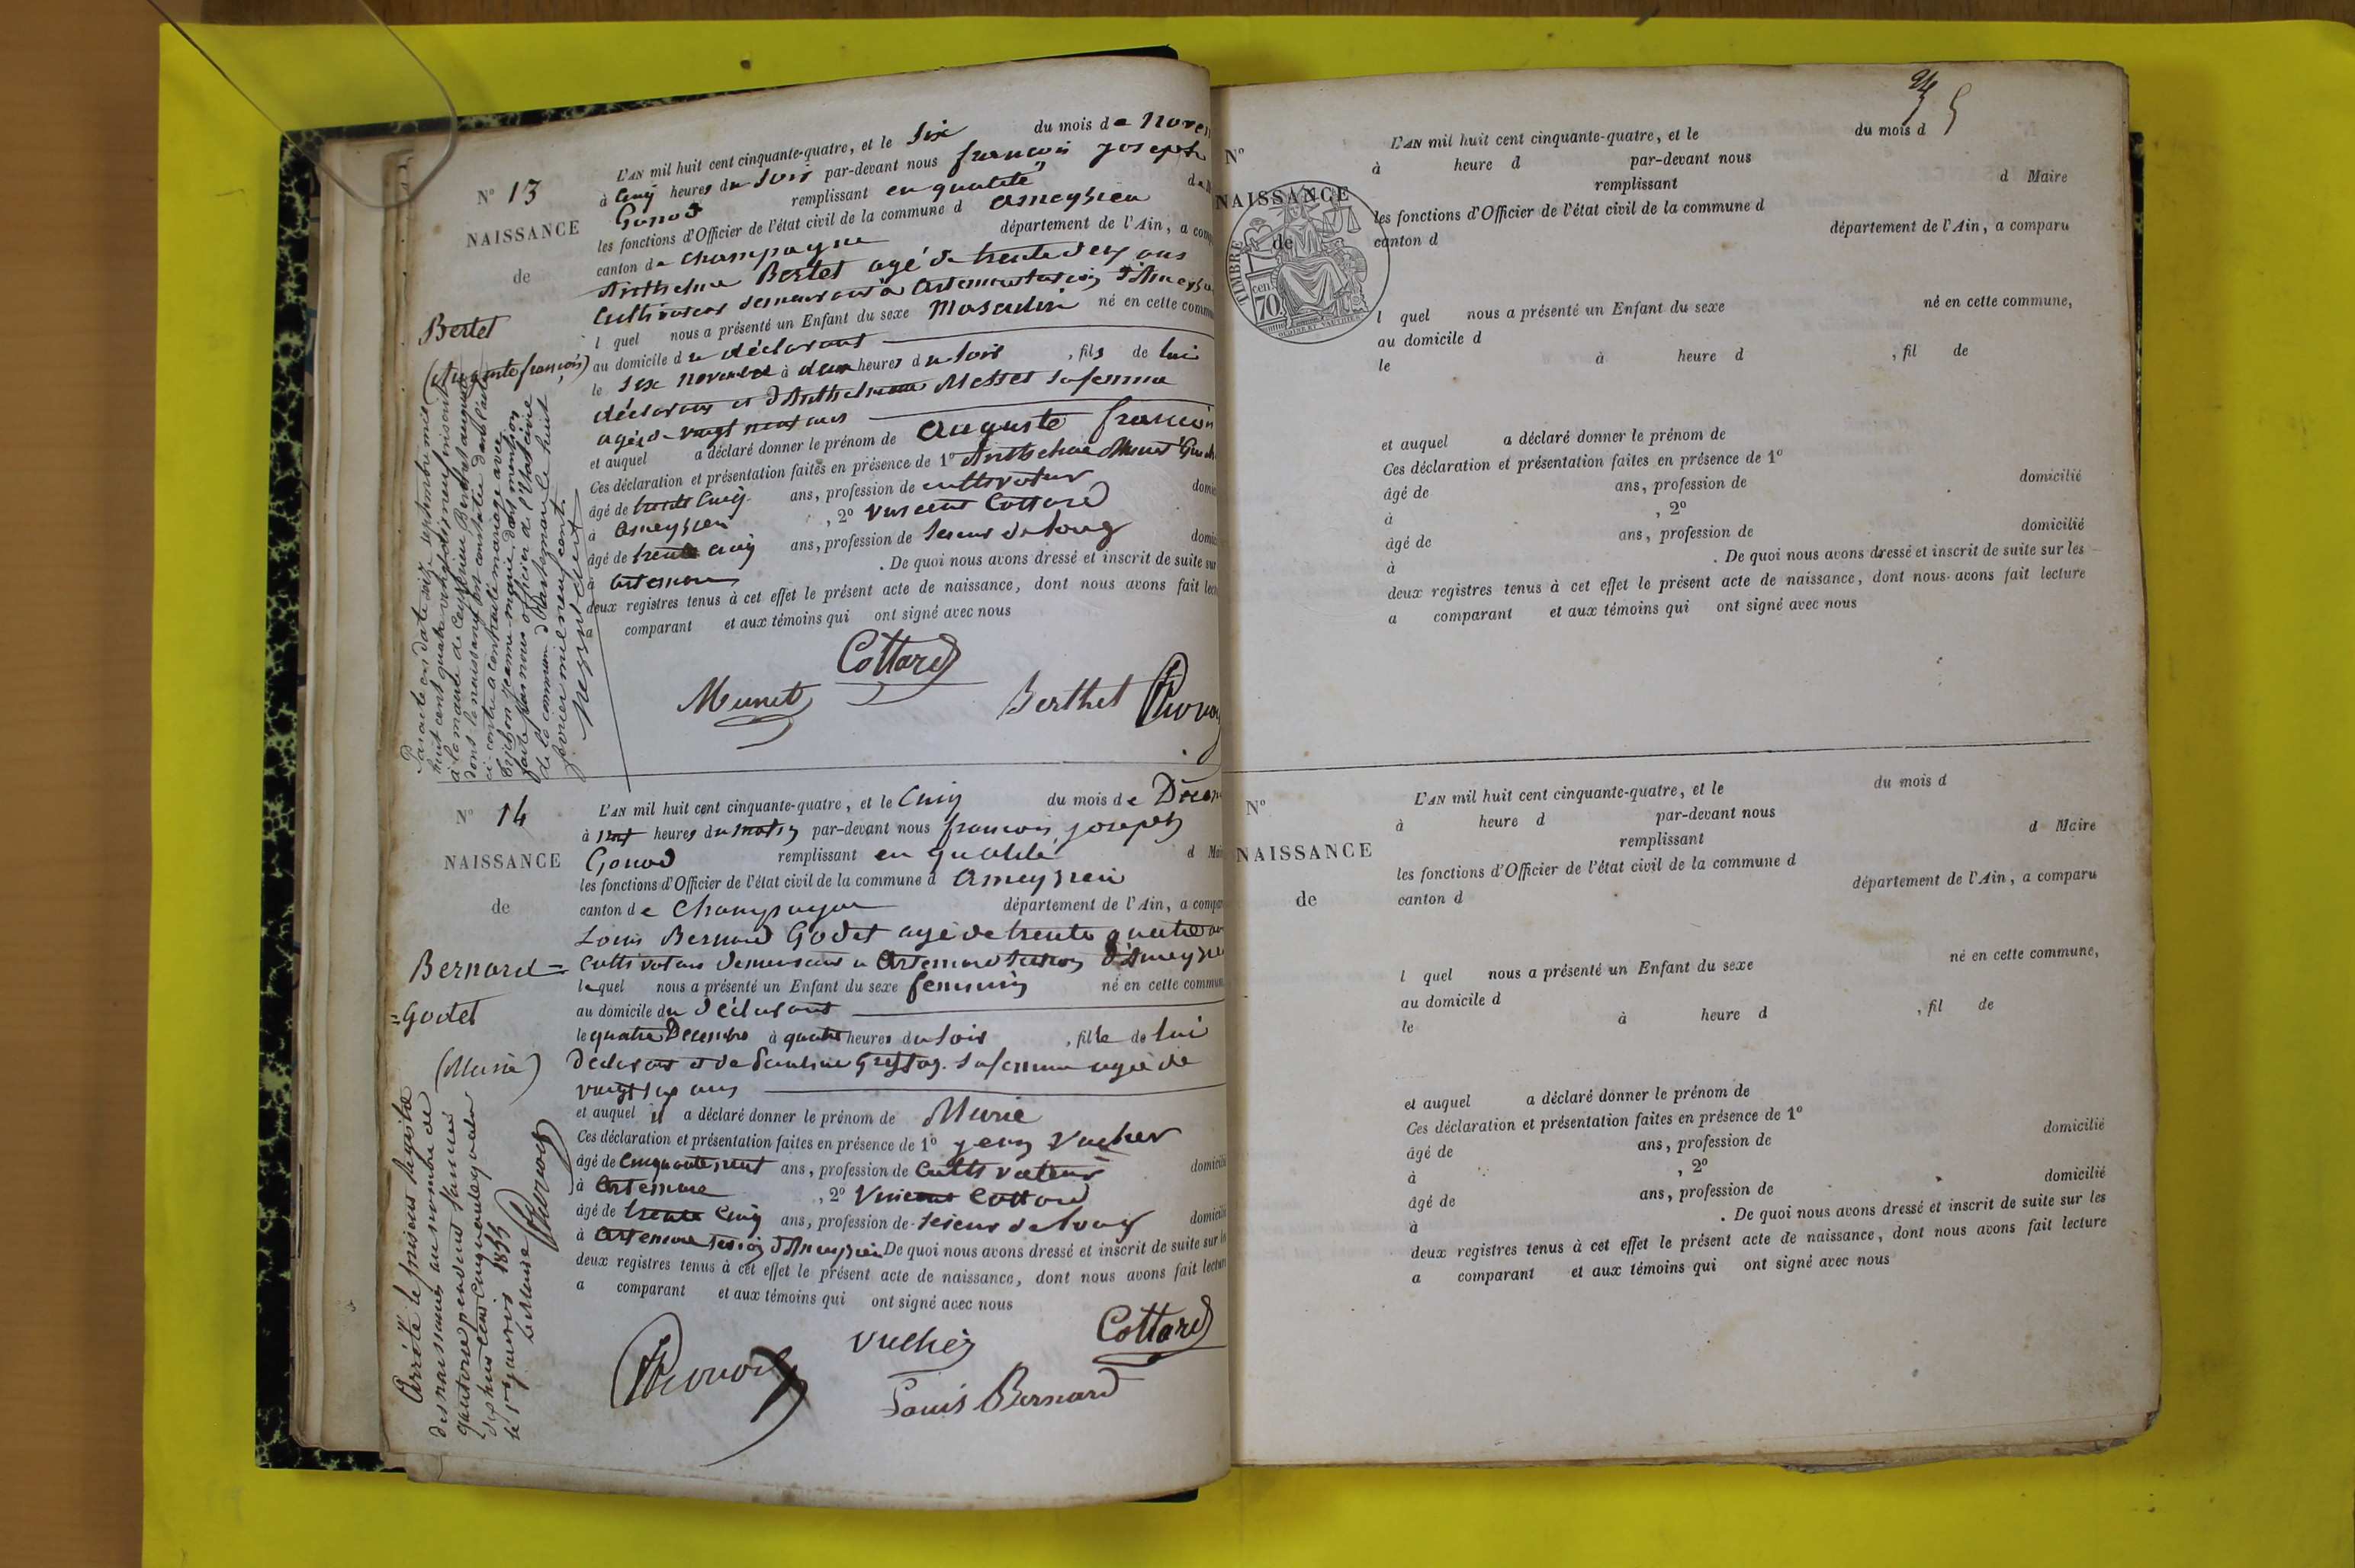 N° 13
NAISSANCE
de
Bertet
(Auguste françois)
L'AN mil huit cent cinquante-quatre, et le Six du mois de Novem
à Cinq heures du Soir par-devant nous françois joseph
Gonod remplissant en qualité de M
les fonctions d'Officier de l'état civil de la commune d ameyzieu
canton de Champagne département de l'Ain, a comp
Anthelme Bertet agé de trente deux ans
Cultivateur demeurant à Artemare section d'Ameyzie
l quel nous a présenté un Enfant du sexe Masculin né en cette commu
au domicile du déclarant
le Six Novembre à deux heures du soir , fils de lui
déclarant et d'Anthelmette Messet sa femme
agée de vingt neuf ans
et auquel a déclaré donner le prénom de Auguste françois
Ces déclaration et présentation faites en présence de 1° Anthelme Munet
âgé de trente Cinq ans, profession de cultivateur domic
à Ameyzieu , 2° Vincent Cottard
âgé de trente cinq ans, profession de Scieur de long domic
à Artemare . De quoi nous avons dressé et inscrit de suite sur
deux registres tenus à cet effet le présent acte de naissance, dont nous avons fait lect
a comparant et aux témoins qui ont signé avec nous
Cottard
Munet
Berthet
Par acte en date seize septembre mil
huit cent quatre vingt dix neuf inscrit
à la mairie de Ceyzérieu Bertet auguste
dont la naissance est constatée dans l'acte
ci-contre a contracté mariage avec
jeanne marie dont mention
faite par nous officier de l'état civil
de la commune d'Artemare le huit
février mil neuf cent
N° 14
NAISSANCE
de
Bernard=
=Godet
(Marie)
L'AN mil huit cent cinquante-quatre, et le Cinq du mois de Décem
à neuf heures du matin par-devant nous françois joseph
Gonod remplissant en qualité d Mai
les fonctions d'Officier de l'état civil de la commune d Ameyzieu
canton de Champagne département de l'Ain, a compar
Louis Bernard Godet agé de trente quatre ans
Cultivateur demeurant à Artemare section d'Ameyzieu
lequel nous a présenté un Enfant du sexe feminin né en cette commun
au domicile du déclarant
le quatre Decembre à quatre heures du soir , fille de lui
déclarant et de Pauline sa femme agée de
vingt six ans
et auquel il a déclaré donner le prénom de Marie
Ces déclaration et présentation faites en présence de 1° jean Vucher
âgé de Cinquante neuf ans, profession de Cultivateur domicili
à Artemare , 2° Vincent Cottard
âgé de trente Cinq ans, profession de Scieur de long domicili
à Artemare section d'Ameyzieu De quoi nous avons dressé et inscrit de suite sur le
deux registres tenus à cet effet le présent acte de naissance, dont nous avons fait lecture
a comparant et aux témoins qui ont signé avec nous
Vucher
Cottard
Louis Bernard
Arrêté le présent registre
des naissances au nombre de
quatorze pendant l'année
mil huit cent cinquante quatre
le 1er janvier 1855
Le Maire
N°
NAISSANCE
de
TIMBRE
70 cen
L'AN mil huit cent cinquante-quatre, et le du mois d
à heure d par-devant nous
remplissant d Maire
les fonctions d'Officier de l'état civil de la commune d
canton d département de l'Ain, a comparu
l quel nous a présenté un Enfant du sexe né en cette commune,
au domicile d
le à heure d , fil de
et auquel a déclaré donner le prénom de
Ces déclaration et présentation faites en présence de 1°
âgé de ans, profession de domicilié
à , 2°
âgé de ans, profession de domicilié
à . De quoi nous avons dressé et inscrit de suite sur les
deux registres tenus à cet effet le présent acte de naissance, dont nous avons fait lecture
a comparant et aux témoins qui ont signé avec nous
N°
NAISSANCE
de
L'AN mil huit cent cinquante-quatre, et le du mois d
à heure d par-devant nous
remplissant d Maire
les fonctions d'Officier de l'état civil de la commune d
canton d département de l'Ain, a comparu
l quel nous a présenté un Enfant du sexe né en cette commune,
au domicile d
le à heure d , fil de
et auquel a déclaré donner le prénom de
Ces déclaration et présentation faites en présence de 1°
âgé de ans, profession de domicilié
à , 2°
âgé de ans, profession de domicilié
à . De quoi nous avons dressé et inscrit de suite sur les
deux registres tenus à cet effet le présent acte de naissance, dont nous avons fait lecture
a comparant et aux témoins qui ont signé avec nous